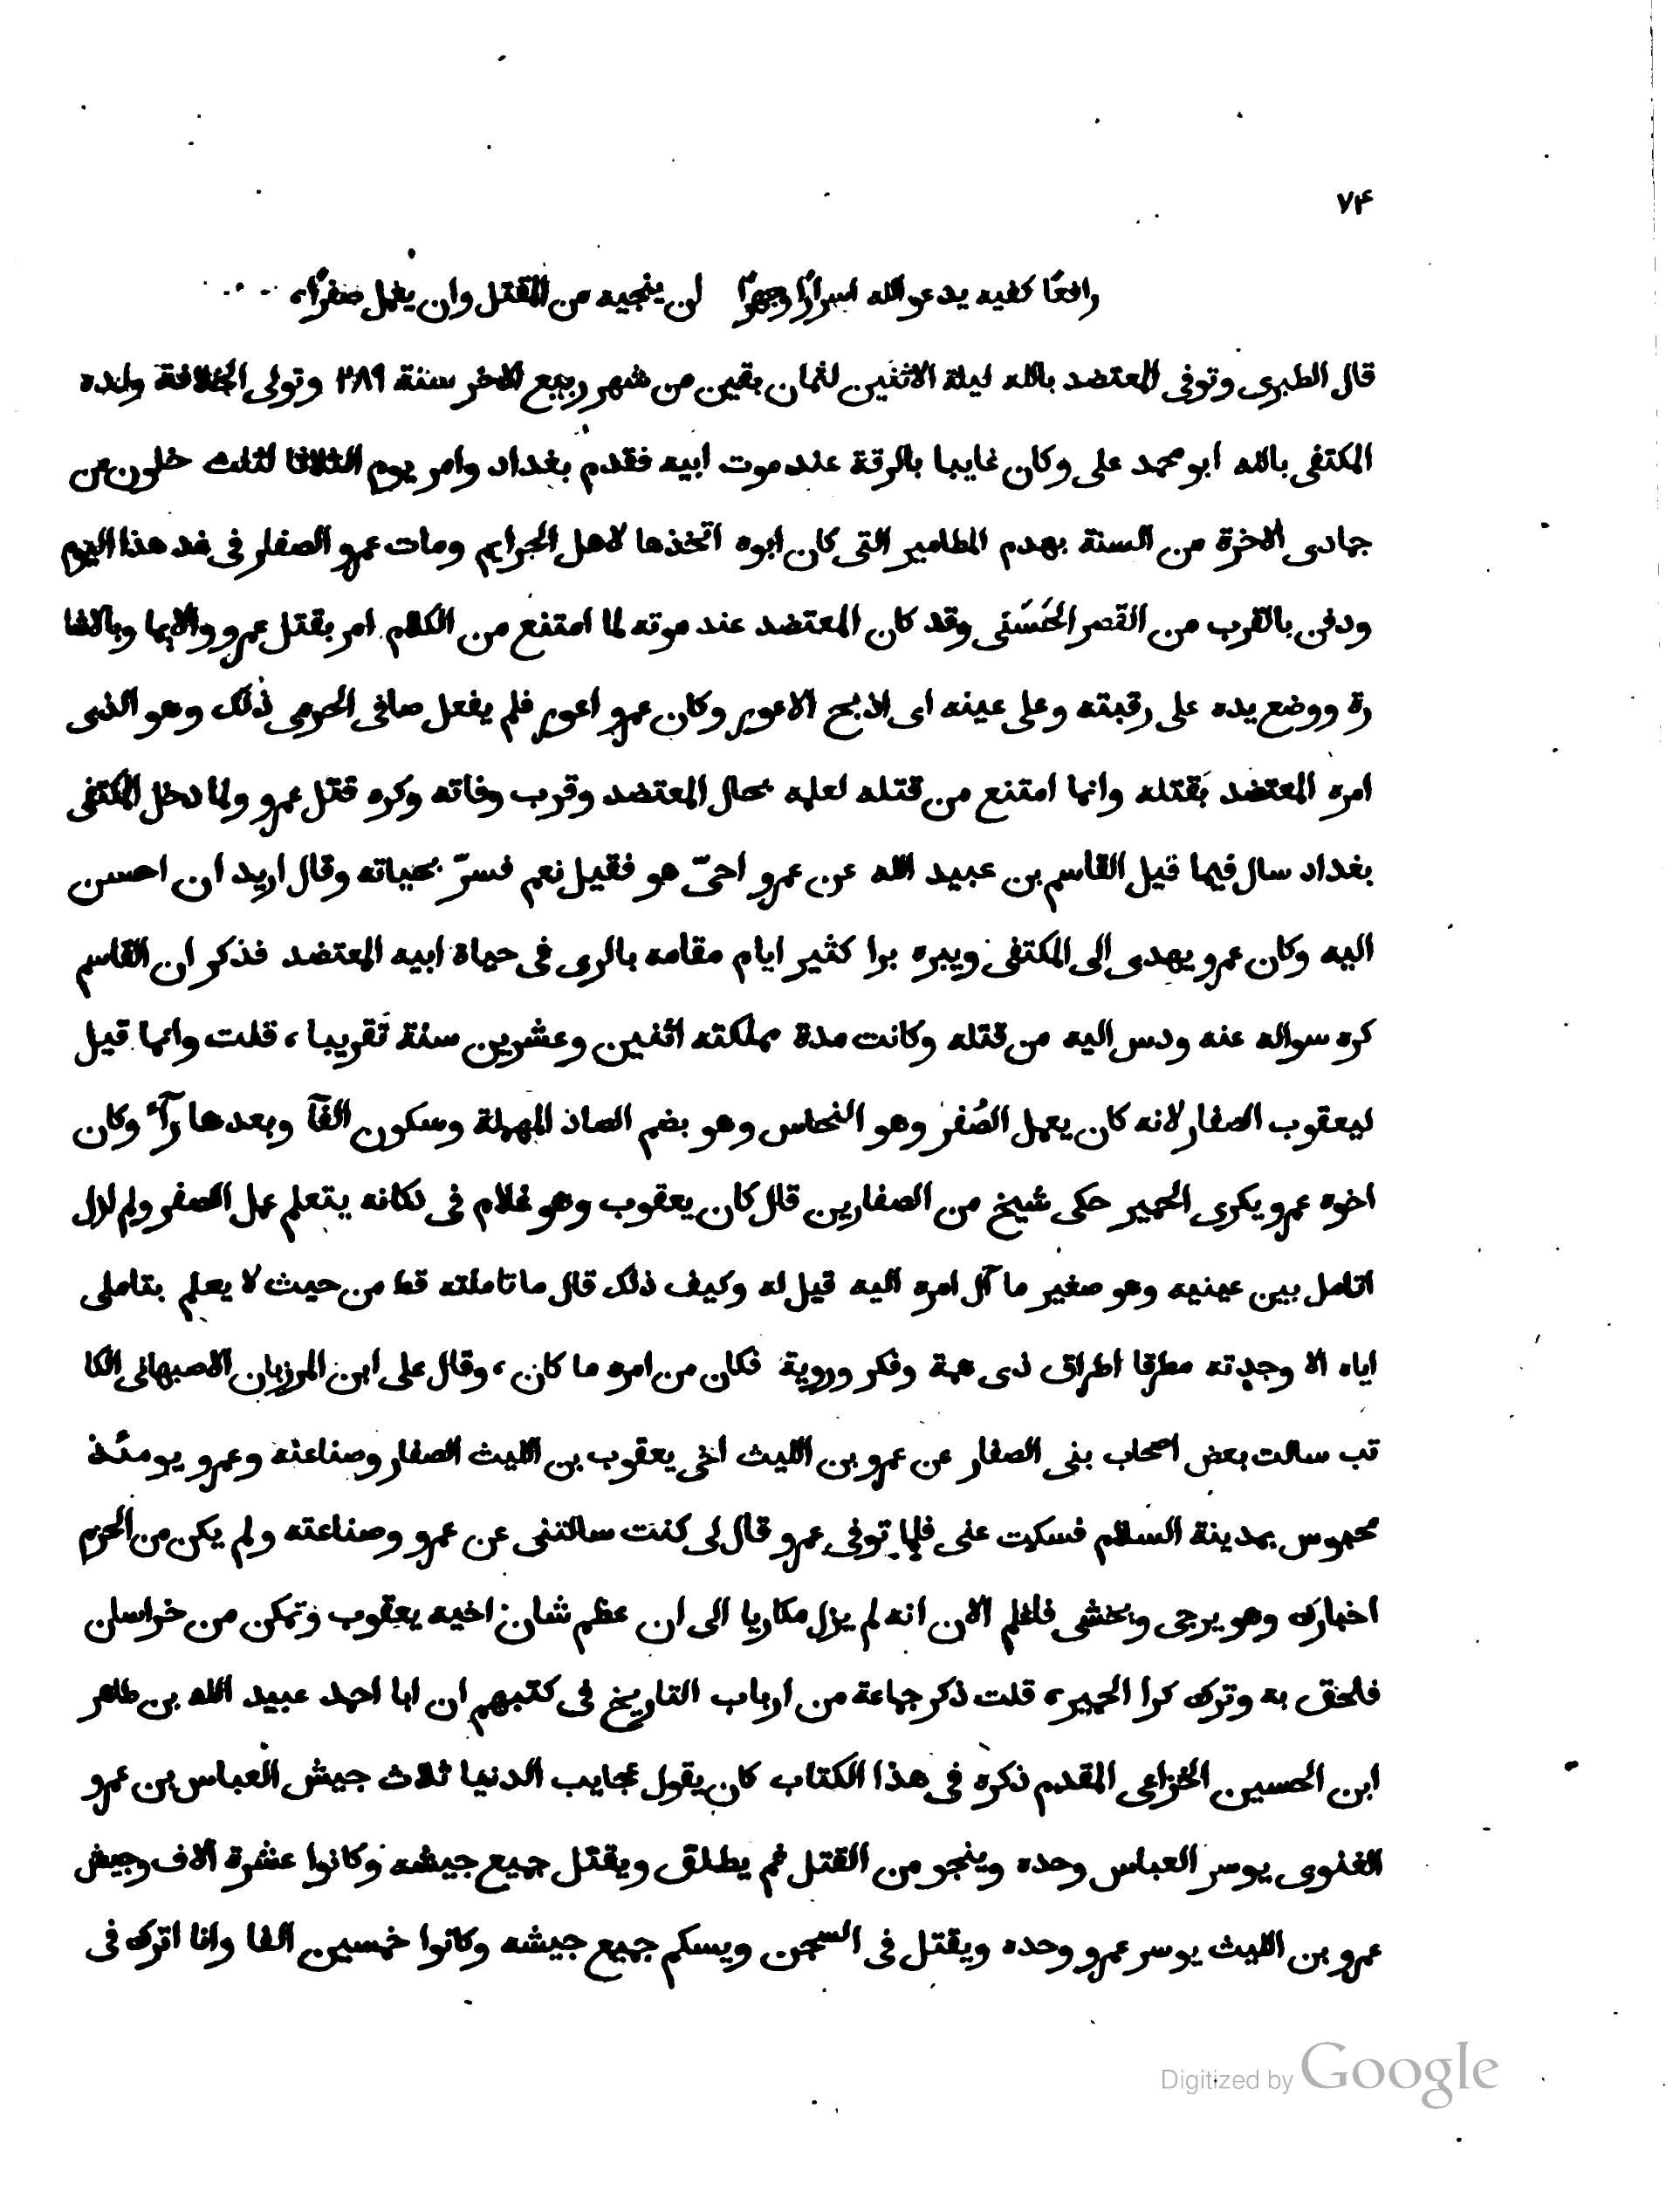 ٧۴
رافعًا كفيه يدعو الله اسرارًا وجهرًا لن ينجيه من القتل وان يعمل صفرًا،
قال الطبرى وتوفى المعتضد بالله ليلة الاثنين لثمان بقين من شهر ربيع الاخر سنة ٢٨٩ وتولى الخلافة ولده
المكتفى بالله ابو محمد على وكان غايبا بالرقة عند موت ابيه فقدم بغداد وامر يوم الثلاثا لثلث خلون من
جمادى الاخرة من السنة بهدم المطامير التى كان ابوه اتخذها لاهل الجرايم ومات عمرو الصفار فى غد هذا اليوم
ودفن بالقرب من القصر الحَسَنى وقد كان المعتضد عند موته لما امتنع من الكلام امر بقتل عمرو والايما وبالاشا
رة ووضع يده على رقبته وعلى عينه اى اذبح الاعور وكان عمرو اعور فلم يفعل صافى الحرمى ذلك وهو الذى
امره المعتضد بقتله وانما امتنع من قتله لعلمه بحال المعتضد وقرب وفاته وكره قتل عمرو ولما دخل المكتفى
بغداد سال فيما قيل القاسم بن عبيد الله عن عمرو احىّ هو فقيل نعم فسرّ بحياته وقال اريد ان احسن
اليه وكان عمرو يهدى الى المكتفى ويبره برا كثير ايام مقامه بالرى فى حياة ابيه المعتضد فذكر ان القاسم
كره سواله عنه ودس اليه من قتله وكانت مدة مملكته اثنين وعشرين سنة تقريبا، قلت وانما قيل
ليعقوب الصفار لانه كان يعمل الصُفر وهو النحاس وهو بضم الصاد المهملة وسكون الفآ وبعدها رآء وكان
اخوه عمرو يكرى الحمير حكى شيخ من الصفارين قال كان يعقوب وهو غلام فى دكانه يتعلم عمل الصفر ولم ازل
اتامل بين عينيه وهو صغير ما آل امره اليه قيل له وكيف ذلك قال ما تاملته قط من حيث لا يعلم بتاملى
اياه الا وجدته مطرقا اطراق ذى همة وفكر وروية فكان من امره ما كان، وقال على ابن المرزبان الاصبهانى الكا
تب سالت بعض اصحاب بنى الصفار عن عمرو بن الليث اخى يعقوب بن الليث الصفار وصناعته وعمرو يومئذ
محبوس بمدينة السلام فسكت عنى فلما توفى عمرو قال لى كنت سالتنى عن عمرو وصناعته ولم يكن من الحزم
اخبارك وهو يرجى ويخشى فاعلم الان انه لم يزل مكاريا الى ان عظم شان اخيه يعقوب وتمكن من خراسان
فلحق به وترك كرا الحمير، قلت ذكر جماعة من ارباب التاريخ فى كتبهم ان ابا احمد عبيد الله بن طاهر
ابن الحسين الخزاعى المقدم ذكره فى هذا الكتاب كان يقول عجايب الدنيا ثلاث جيش العباس بن عمرو
الغنوى يوسر العباس وحده وينجو من القتل ثم يطلق ويقتل جميع جيشه وكانوا عشرة آلاف وجيش
عمرو بن الليث يوسر عمرو وحده ويقتل فى السجن ويسكم جميع جيشه وكانوا خمسين الفا وانا اترك فى
Digitized by Google